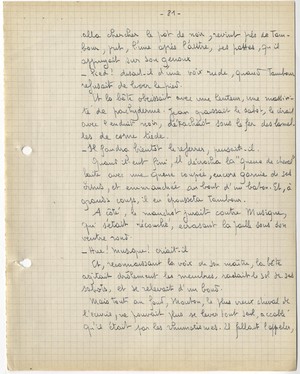 - 21 -
alla chercher le pot de noir, revint près de Tam-
bour, prit, l'une après l'autre, ses pattes, qu'il
appuyait sur son genoux.
- Pied! disait-il d'une voix rude, quand Tambour
refusait de lever le pied.
Et la bête obéissait avec une lenteur, une
de pachyderme. Jean graissait le sabot, le
avec l'enduit noir, détachant sous le fer des
les de corne tiède.
- Il faudra bientôt le referrer, pensait-il.
Quand il eut fini, il la queue de cheval
faite avec une queue coupée, encore garnie de ses
crins, et emmanchée au bout d'un bâton. Et, à
grands coups, il en épousseta Tambour.
A côté, le manchot jurait contre Musique,
qui s'était recouchée, écrasant la paille sous son
ventre rond.
- Hue! Musique! criait-il.
Et, reconnaissant la voix de son maître, la bête
agitait drôlement les membres, raclait le sol de ses
sabots, et se relevait d'un bond.
Mais tout au fond, Mouton, le plus vieux cheval de
l'écurie, ne pouvait plus se lever tout seul, accablé
qu'il était par les rhumatismes. Il fallait l'appeler,